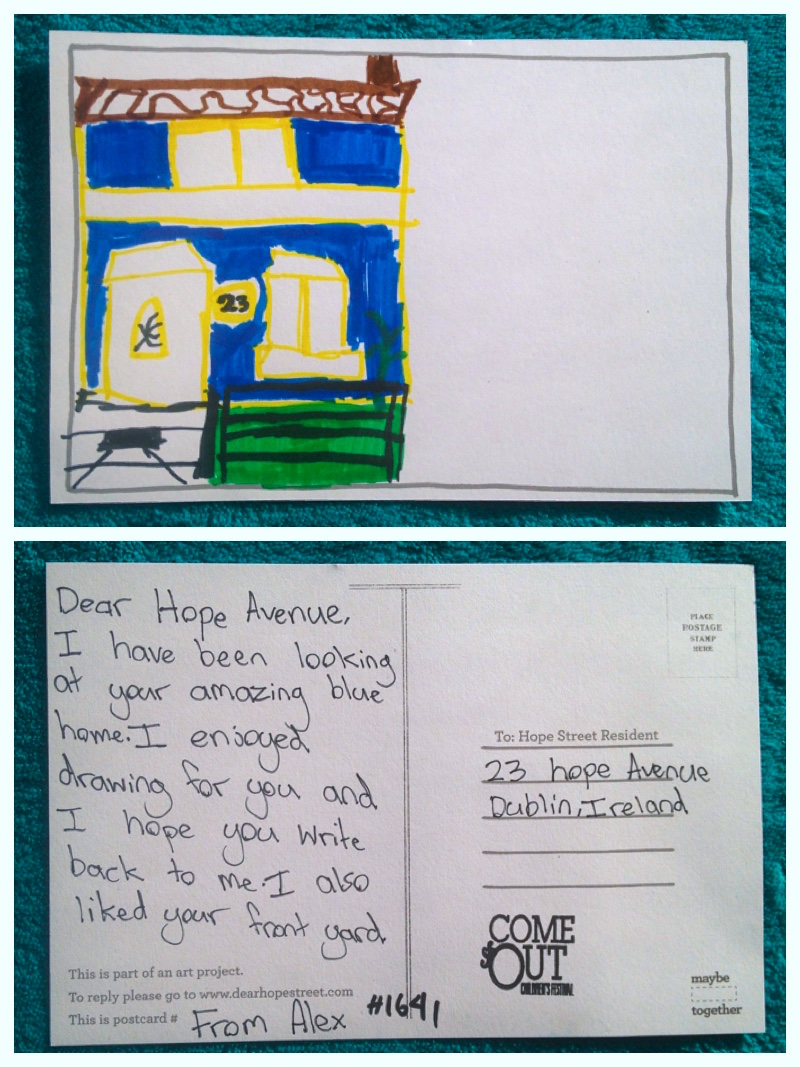 23
Dear Hope Avenue,
I have been looking
at your amazing blue
home. I enjoyed
drawing for you and
I hope you write
back to me. I also
liked your front yard
This is part of an art project.
To reply please go to www.dearhopestreet.com
This is postcard # From Alex #1641
PLACE
POSTAGE
STAMP
HERE
To: Hope Street Resident
23 hope Avenue
Dublin, Ireland
COME
OUT
CHILDREN'S FESTIVAL
maybe
together